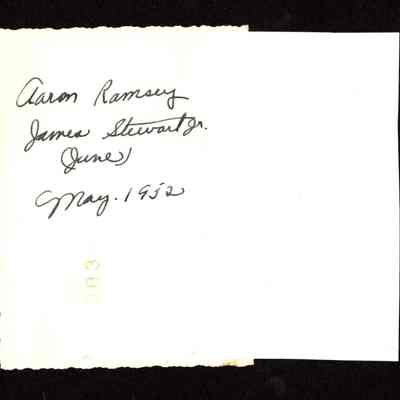 Aaron Ramsey
James Stewart Jr.
(June)
May. 1952
003